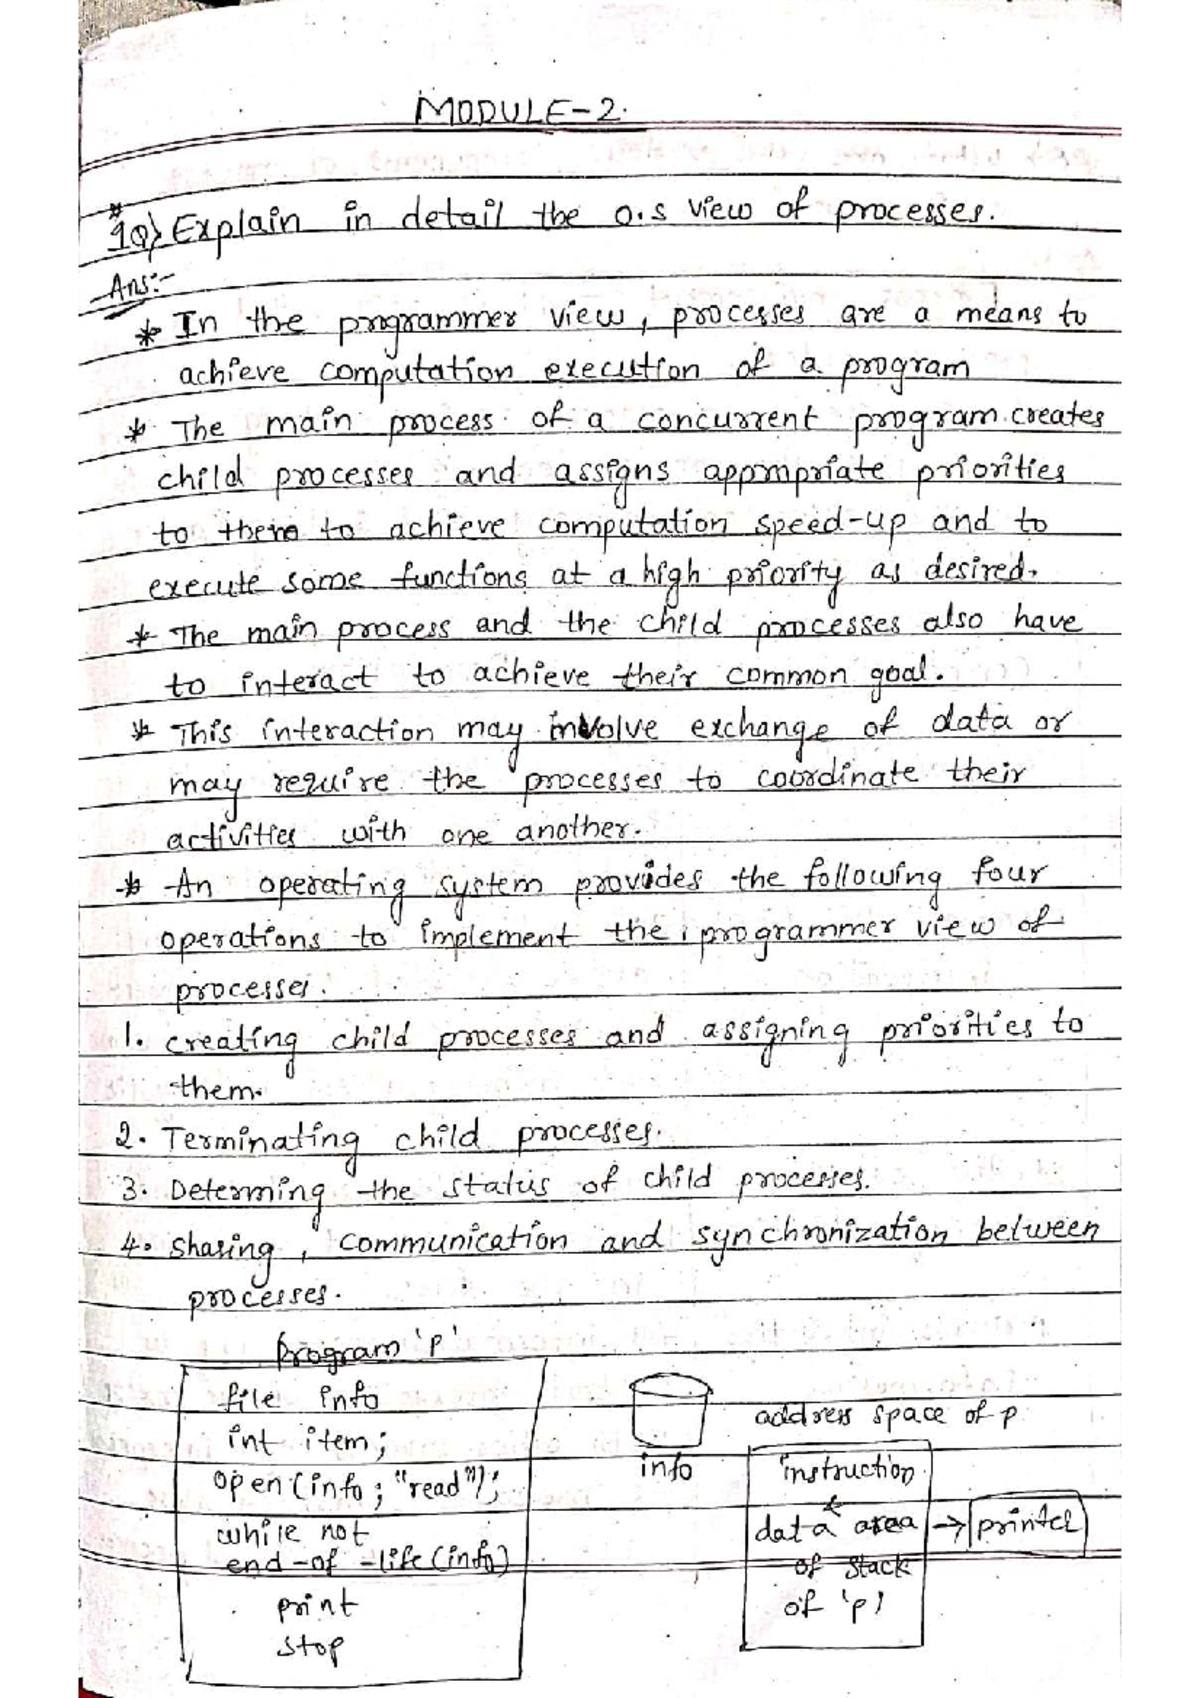 MODULE-2.
*
1Q) Explain in detail the O.S view of processes.
Ans:-
* In the programmer view, processes are a means to
achieve computation execution of a program
* The main process of a concurrent program creates
child processes and assigns appropriate priorities
to them to achieve computation speed-up and to
execute some functions at a high priority as desired.
* The main process and the child processes also have
to interact to achieve their common goal.
* This interaction may involve exchange of data or
may require the processes to coordinate their
activities with one another.
* An operating system provides the following four
operations to implement the programmer view of
processes.
1. creating child processes and assigning priorities to
them.
2. Terminating child processes.
3. Determing the status of child processes.
4. sharing, communication and synchronization between
processes.
Program 'p'
file info
int item;
open(info; "read");
while not
end-of-life(info)
print
stop
info
address space of p
instruction
&
data area
of stack
of 'p'
→ printer